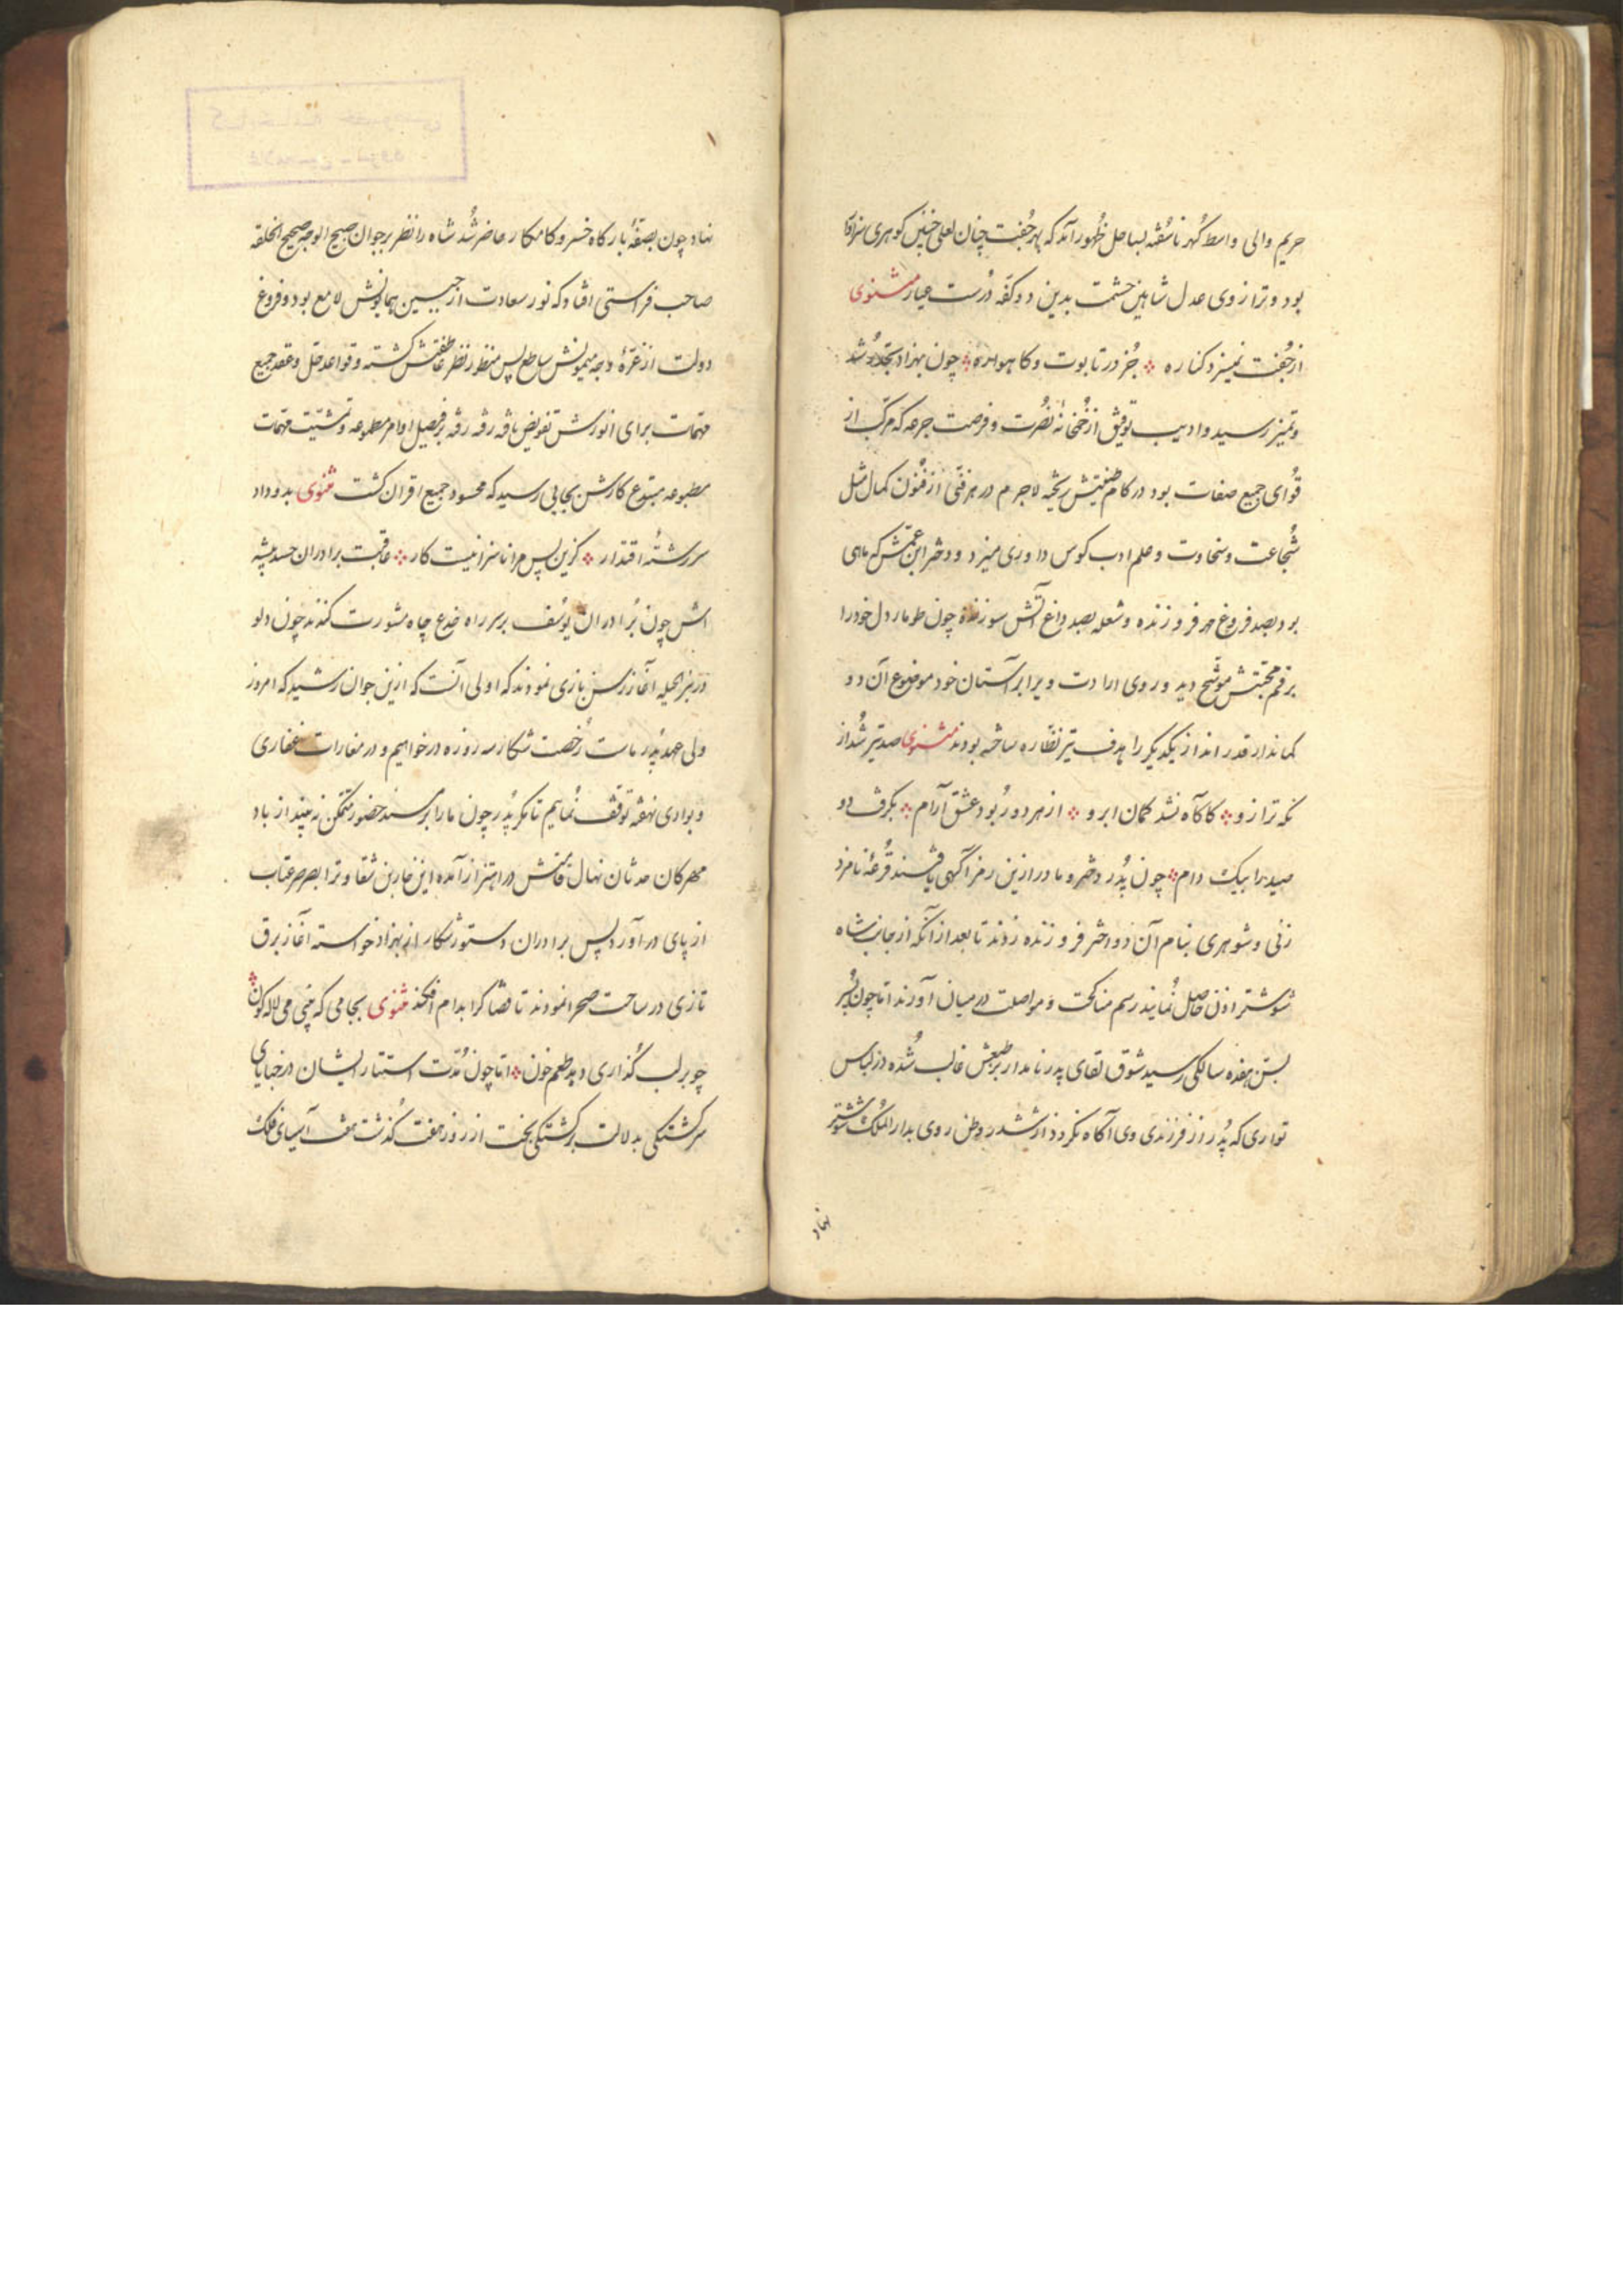 حریم والی واسط گهر ناسُفته بساحل ظُهور آمد که بهر جُفت چنان لعلی چنین گوهری سزاوار
بود و ترازوی عدل شاهین حشمت بدین دو کفّه دُرست عیار مثنوی
از جُفت نمیزد کناره جُز در تابوت و کاهواره چون بهزاد بحد رُشد
و تمیز رسید و ادیب توفیق از خُمخانهٔ نصُرت و فرصت جرعه که مرکّب از
قُوای جمیع صفات بود در کام طینتش ریخته لاجرم در هر فنّی از فُنون کمال مثل
شُجاعت و سخاوت و علم ادب کوس داوری میزد و دختر ابن عمّش که ماهی
بود بصد فروغ مهر فروزنده و شعله بصد داغ آتش سوزنده چون طومار دل خود را
برقم محبّتش موشّح دید و روی ارادت ویرا بر آستان خود موضوع آن دو
کماندار قدر انداز یکدیگر را هدف تیر نظاره ساخته بودند مثنوی صد تیر شُد از
نکه ترازو کاکاه نشد کمان ابرو از هر دو رُبود عشق آرام بکرفت دو
صید را بیک دام چون پدُر دختر و مادر ازین رمز آگهی یافتند قُرعهٔ نامزد
زنی و شوهری بنام آن دو اختر فروزنده زدند تا بعد از آنکه از جانب شاه
شوشتر اذن حاصل نُمایند رسم مناکحت و مواصلت در میان آورند امّا چون پُسر
بسنّ هفده سالکی رسید شوق لقای پدر نامدار بر طبعش غالب شُده در لباس
تواری که پُدر از فرزندی وی آکاه نکردد از ششدر وطن روی بدار المُلک شوشتر
نهاد
نهاد چون بصفّهٔ بارکاه خسرو کامکار حاضر شُد شاه را نظر بر جوان صبیح الوجه صحیح الخلقه
صاحب فراستی افتاد که نور سعادت از جبین همایونش لامع بود و فروغ
دولت از غرّهٔ وجه میمونش ساطع پس منظور نظر عاطفتش کشته و قواعد حل و عقد جمیع
مهمّات برای انورش تفویض یافه رفه رفه بر فیصل اوامر مطبوعه و تمشیّت مهمّات
مطبوعه متبوع کارش بجایی رسید که محسود جمیع اقران کشت مثنوی بدو داد
سررشتهٔ اقتدار کزین پس مرا ناسزا نیست کار عاقبت برادران حسد پیشه
اش چون بُرادران یوسُف بر سر راه خدع چاه مشورت کندند چون دلو
در بئر الحیله آغاز رسن بازی نمودند که اولی آنست که ازین جوان رشید که امروز
ولی عهد پدُر ماست رُخصت شکار سه روزه درخواهیم و در مغارات غفاری
و بوادی نهفه توقّف نُماییم تا مکر پُدر چون ما را بر مسند حضور متمکّن نه بیند از باد
مهرکان حدثان نهال قامتش در اهتزاز آمده این خاربن شقاوترا بصرصر عتاب
از پای در آورد پس برادران دستور شکار از بهزاد خواسته آغاز برق
تازی در ساحت صحرا نمودند تا قضا کرا بدام افکند مثنوی بجامی که چنی می لاله کون
چو بر لب کُذاری دهد طعم خون امّا چون مُدّت استتار ایشان در خبایای
سرکشتکی بدلالت برکشتکی بخت از روز هفت کُذشت هفت آسیای فلک